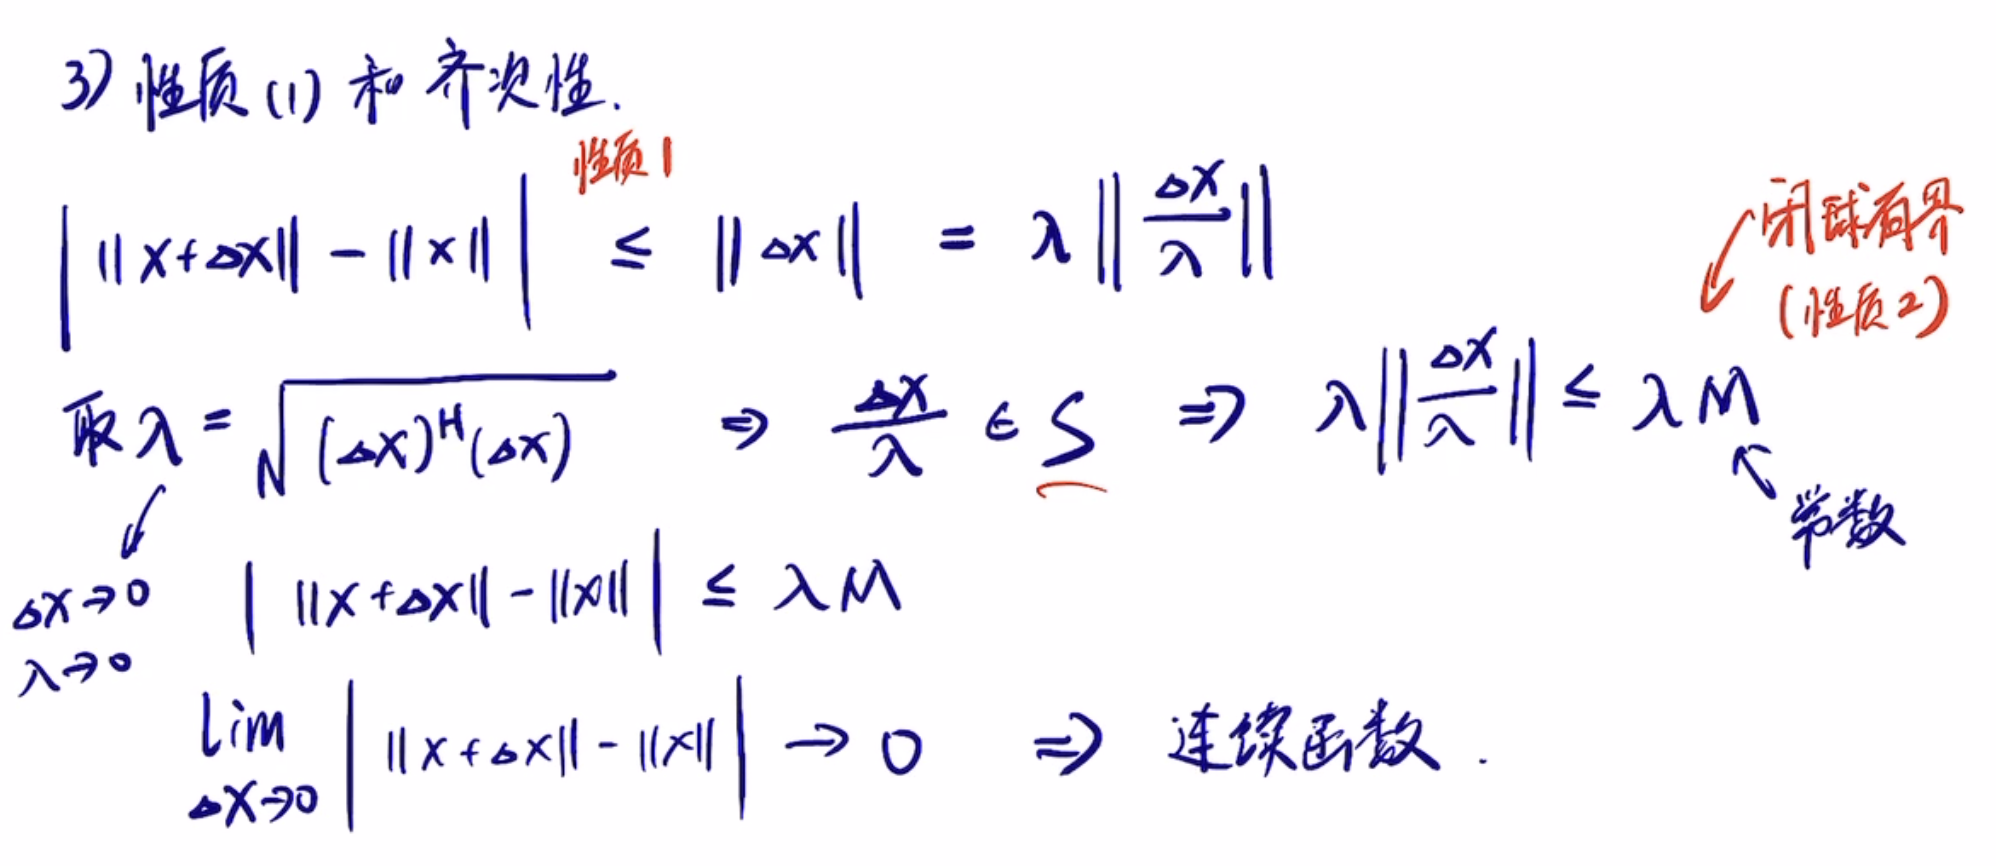 3) 性质 (1) 和 齐次性.
性质1
| ||X+ΔX|| - ||X|| | ≤ ||ΔX|| = λ || ΔX/λ ||
闭球有界
(性质2)
取 λ = √((ΔX)^H (ΔX)) ⇒ ΔX/λ ∈ S ⇒ λ || ΔX/λ || ≤ λ M
常数
ΔX→0 | ||X+ΔX|| - ||X|| | ≤ λ M
λ→0
lim ΔX→0 | ||X+ΔX|| - ||X|| | → 0 ⇒ 连续函数.